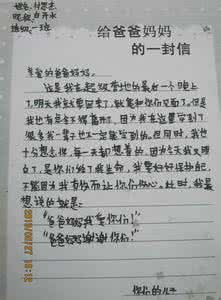 姓名:付
昵称:白开水
班级:一班
给爸爸妈妈
的一封信
亲爱的爸爸妈妈:
这是我在超级营地的最后一个晚上
了,明天我就要回家了,就能和你们见面了,但是
我也有些舍不得离开,因为我在这里学到了
很多我一辈子也不一定能学到的。在同时,我也
十分想念你,每一天都想着的。因为今天我又明
白了,是你们给了我生命,我要好好保护她,
不能因为我有而让你们伤心。此时,我最
想说的就是:
"爸爸妈妈我爱你们!"
"爸爸妈妈谢谢你们!"
你们的儿子